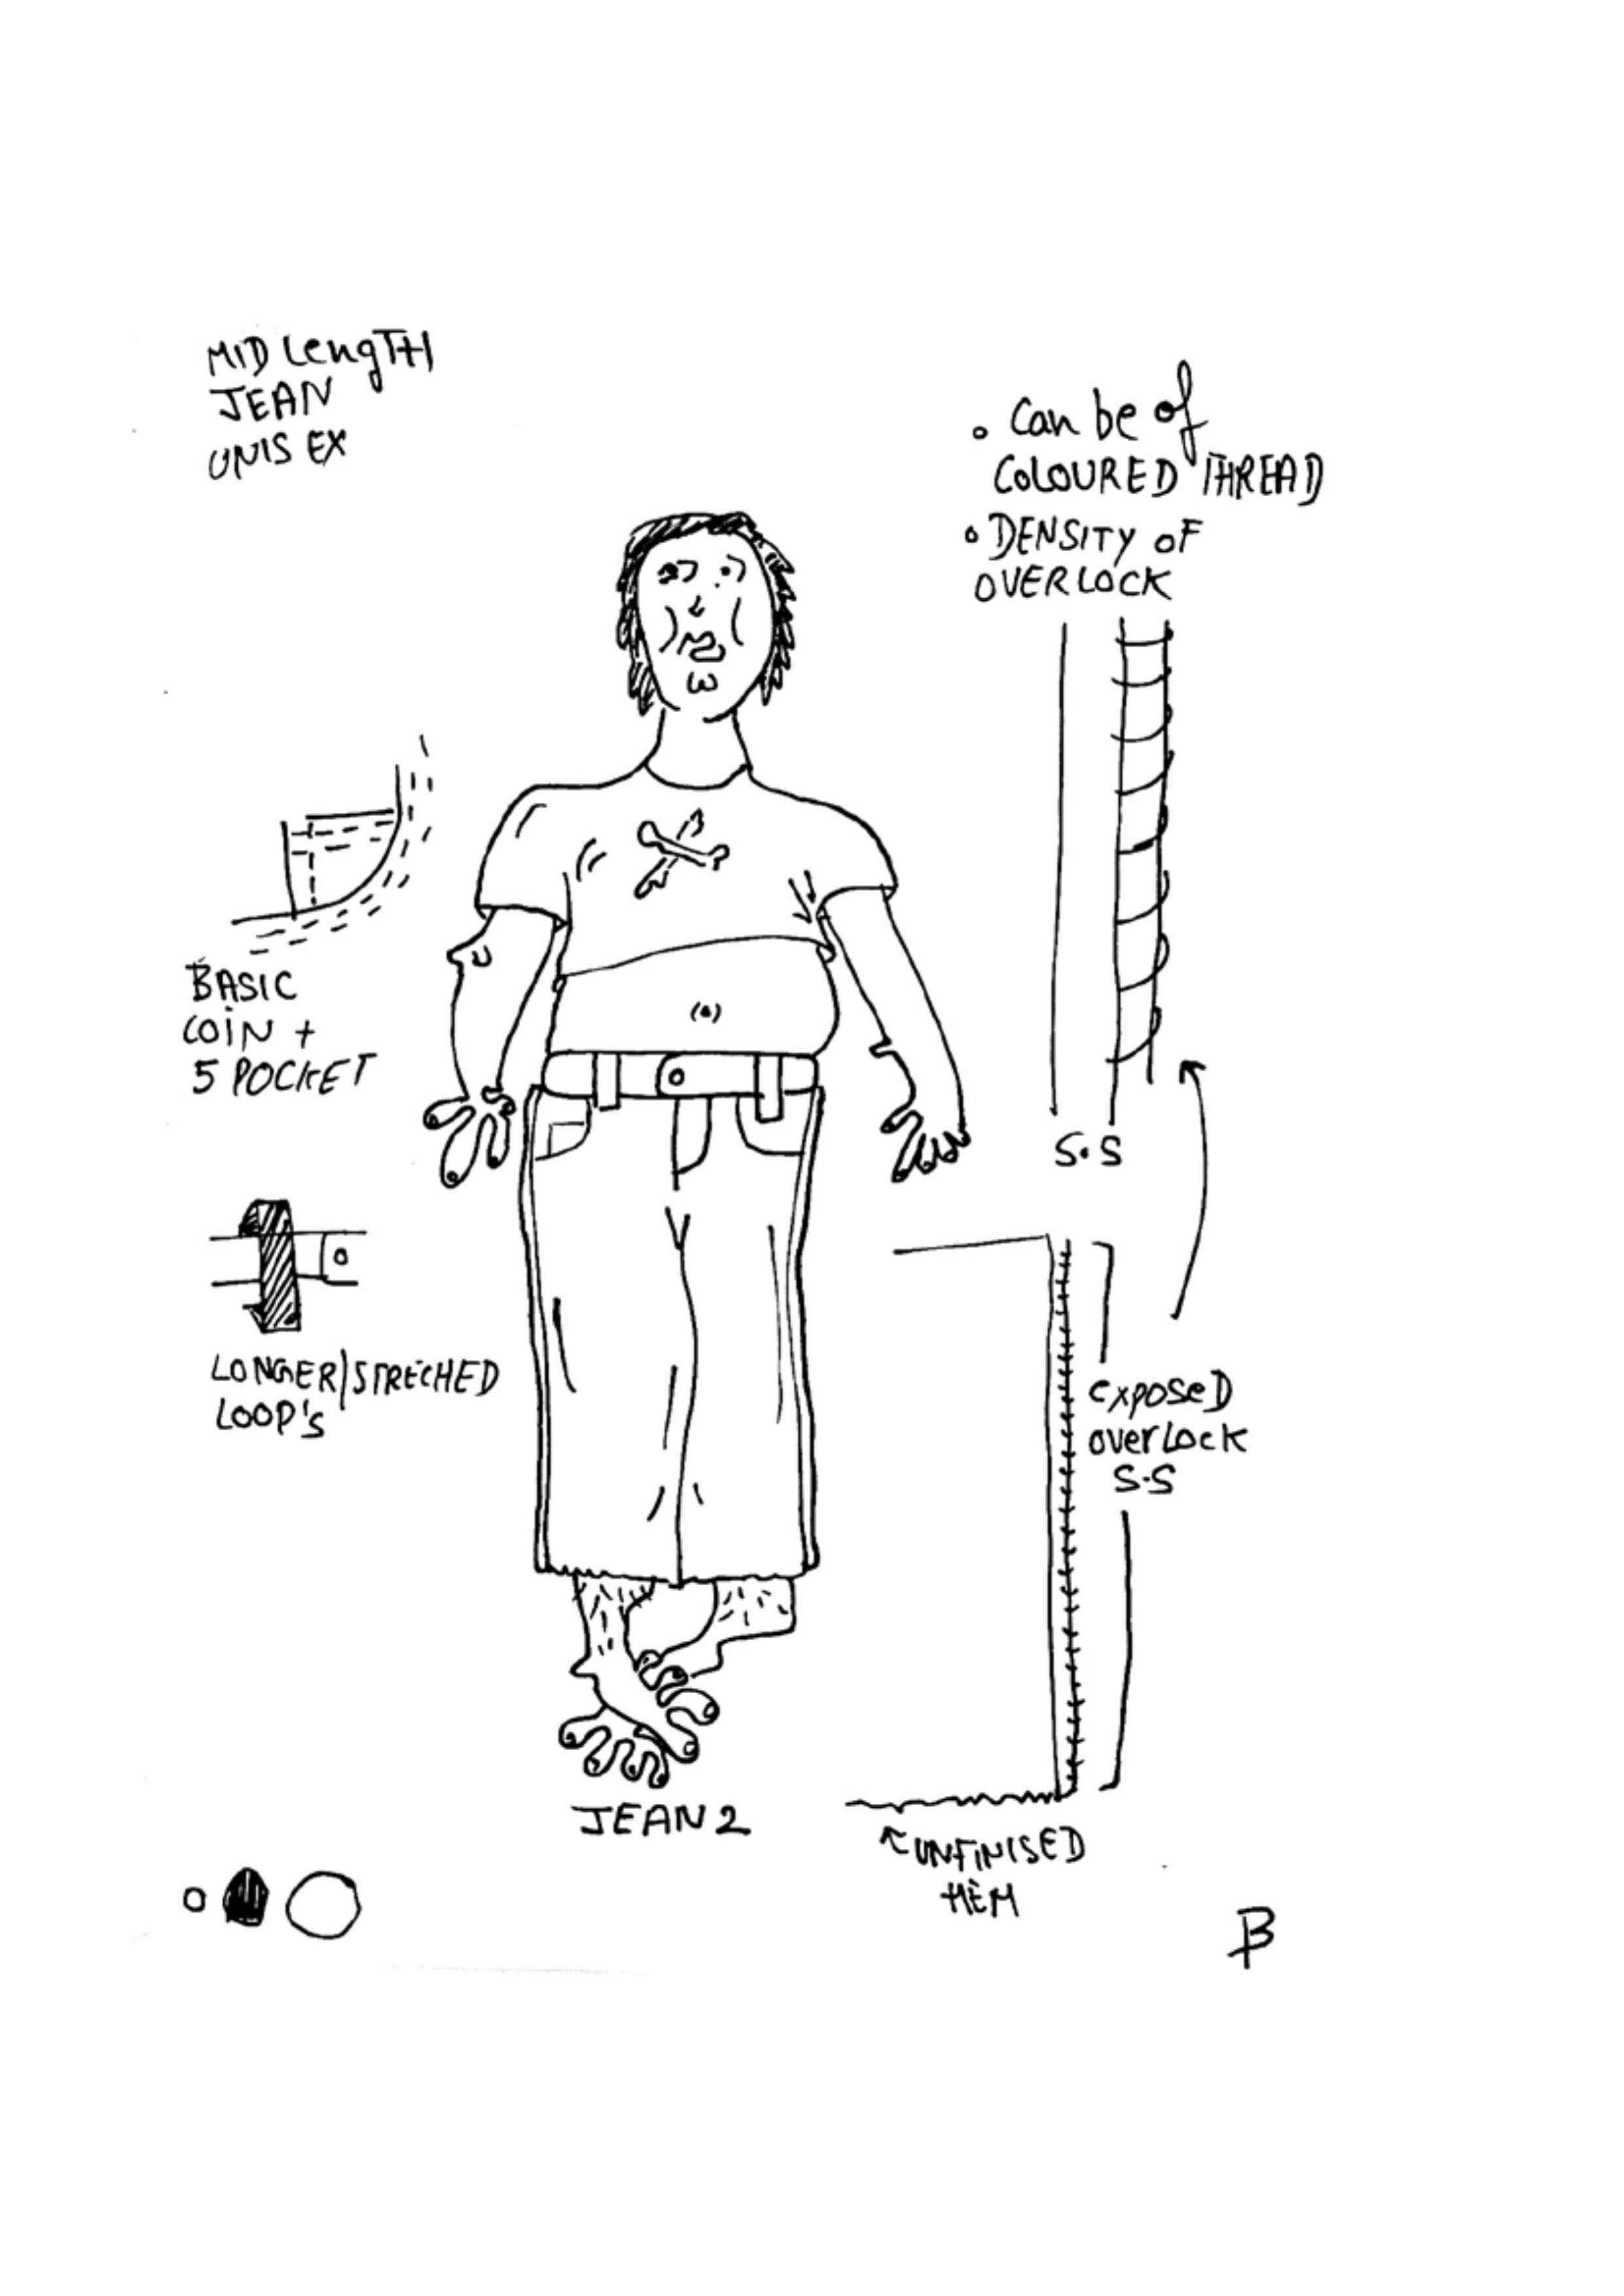 MID LengTH
JEAN
UNISEX
• Can be of
COLOURED THREAD
• DENSITY OF
OVERLOCK
BASIC
COIN +
5 POCKET
S.S
LONGER/STRECHED
LOOP'S
exposeD
overLock
S.S
JEAN 2
UNFINISED
HEM
B